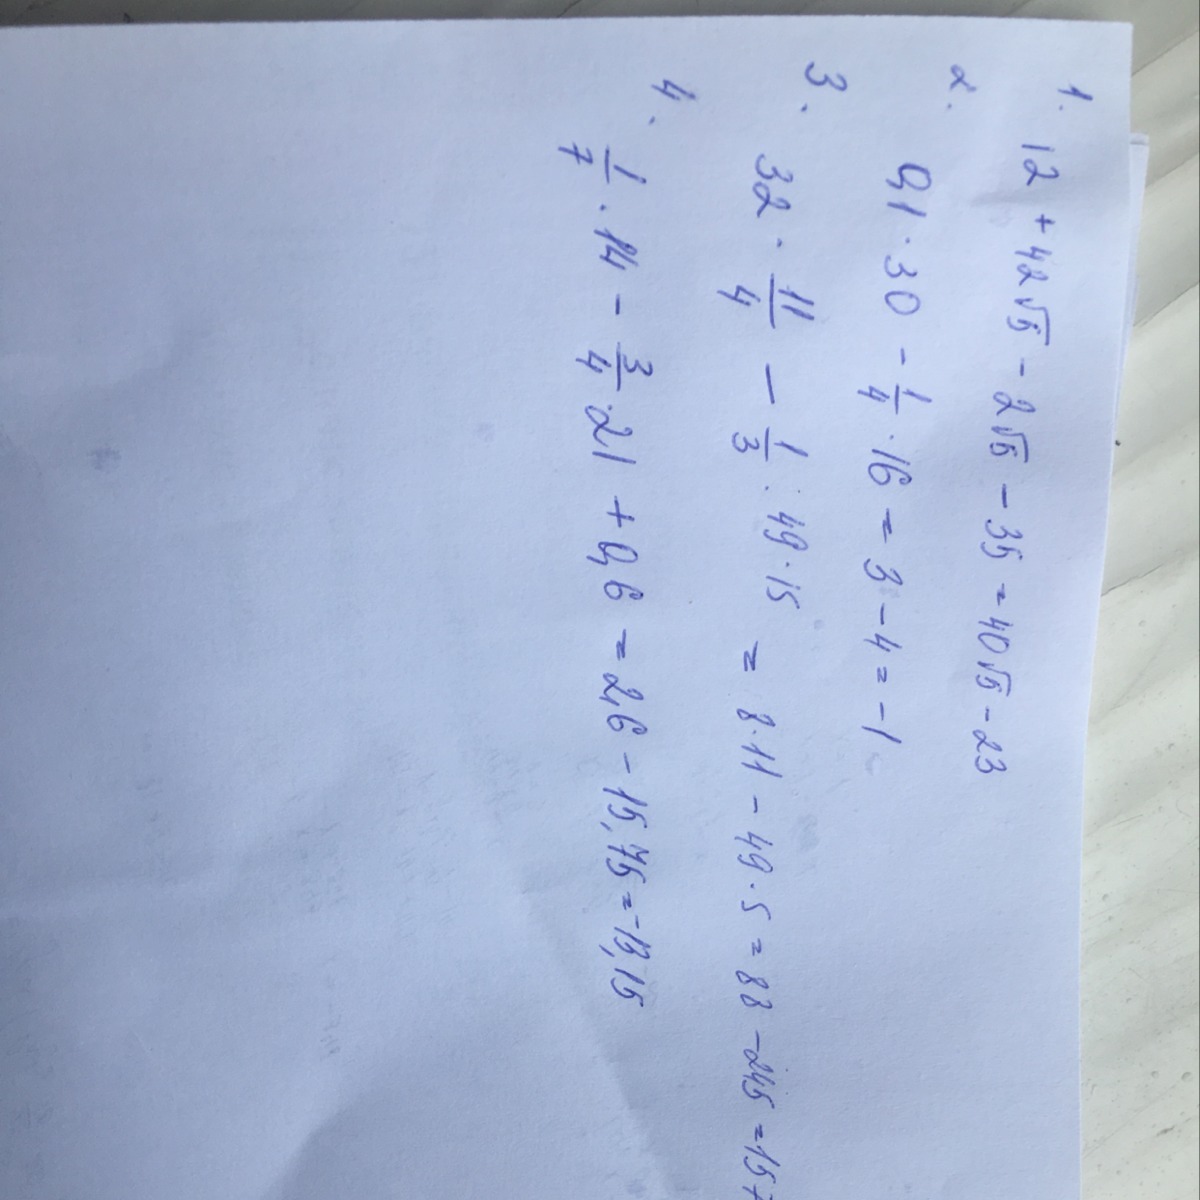 1. 12 + 42√5 - 2√5 - 35 = 40√5 - 23
2. 0,1 · 30 - 1/4 · 16 = 3 - 4 = -1
3. 32 · 11/4 - 1/3 : 49 · 15 = 8 · 11 - 49 · 5 = 88 - 245 = 157
4. 1/7 · 14 - 3/4 · 21 + 0,6 = 2,6 - 15,75 = -13,15